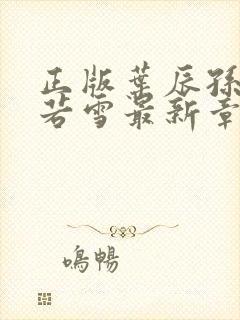 正版葉辰孫
若雪最新章
鳴暢